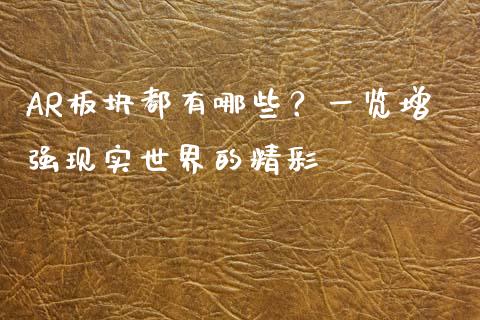 AR板块都有哪些？一览增
强现实世界的精彩